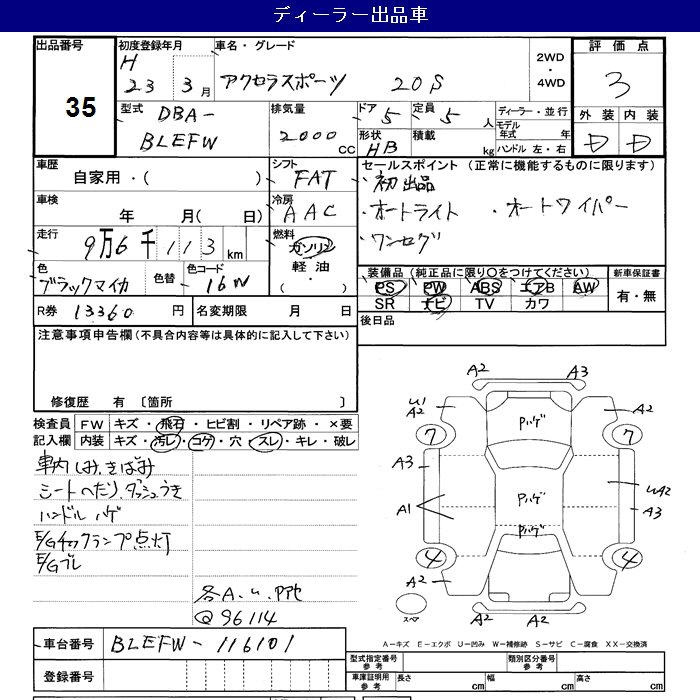 ディーラー出品車
出品番号
35
初度登録年月
H 23 3 月
車名・グレード
アクセラスポーツ 20S
2WD・4WD
評価点
3
外装 内装
D D
型式
DBA-BLEFW
排気量
2000 CC
ドア 5
定員 5 人
形状 HB
積載 kg
ディーラー・並行
モデル年式 年
ハンドル 左・右
車歴
自家用・( )
シフト FAT
車検
年 月( 日)
冷房 AAC
走行
9万6千113 km
燃料
ガソリン
軽油
・( )
色
ブラックマイカ
色替
色コード 16W
R券 13360 円
名変期限 月 日
セールスポイント (正常に機能するものに限ります)
・初出品
・オートライト ・オートワイパー
・ワンセグ
装備品 (純正品に限り〇をつけてください)
PS PW ABS エアB AW
SR ナビ TV カワ
新車保証書
有・無
後日品
注意事項申告欄(不具合内容等は具体的に記入して下さい)
修復歴 有 〔箇所 〕
検査員記入欄
FW キズ・飛石・ヒビ割・リペア跡・×要
内装 キズ・汚レ・コゲ・穴・スレ・キレ・破レ
車内しみ、きばみ
シートへたり、ダッシュうき
ハンドル ハゲ
E/Gチェックランプ点灯
E/Gブレ
各A.u.P他
Q96114
A2 A3
U1 A2 A2
Pハゲ
7 7
A3
Pハゲ
UA2
A1 A3
Pハゲ
4 4
A2
スペア
A2 A2
A－キズ E－エクボ U－凹み W－補修跡 S－サビ C－腐食 XX－交換済
車台番号 BLEFW-116101
登録番号
型式指定番号 参考
類別区分番号 参考
車庫証明用 参考 長さ cm 幅 cm 高さ cm